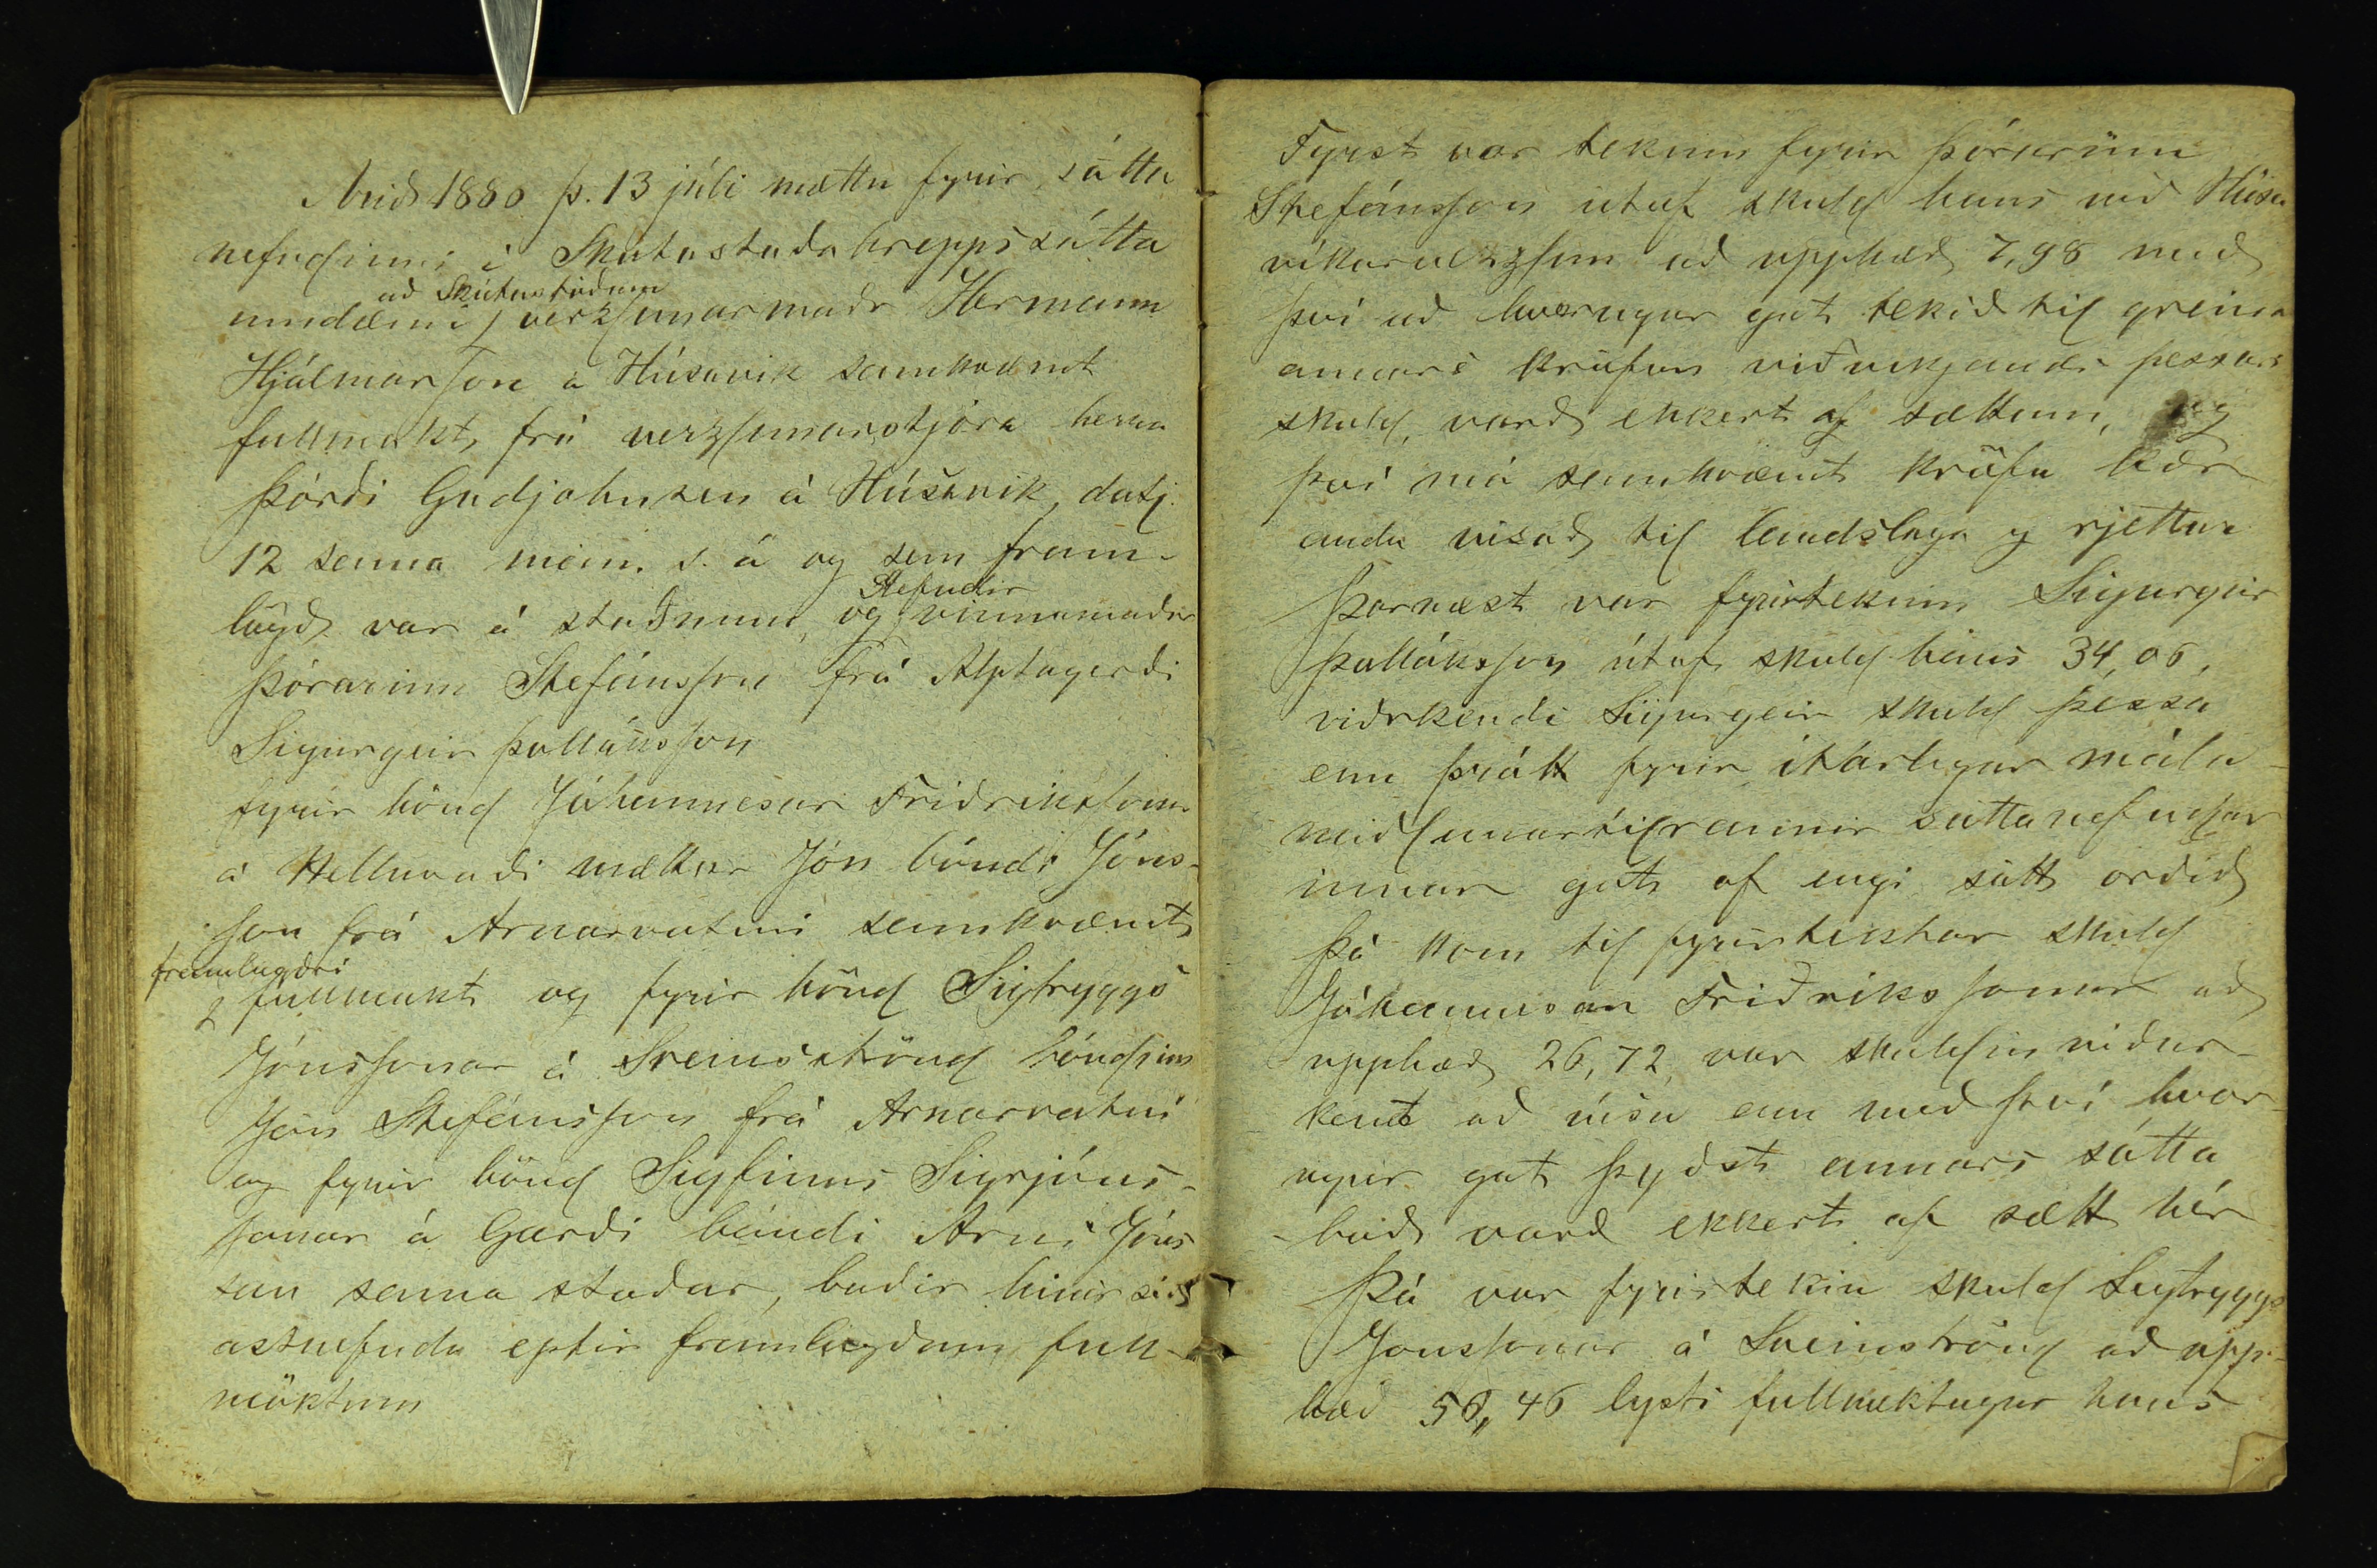 Árið 1880 þ. 13 júli mættu fyrir sátta
nefndinni í Skútustaða hrepps sátta
að Skútustöðum
umdæmi verzlunarmaðr Hermann
Hjálmarson á Húsavik samkvæmt
fullmakt frá verzlunarstjóra herra
Þórði Gudjohnsen á Húsavik, dats.
12 sama mán. s. á og sem fram-
Stefndir
lögð var á staðnum, og vinnumaðr
Þórarinn Stefánsson frá Alptagerði
Sigurgeir Þolláksson
fyrir hönd Jóhannesar Friðrikssonar
á Helluvaði mættur Jón bóndi Jóns-
son frá Arnarvatni samkvæmt
framlagðri
fullmakt og fyrir hönd Sigtryggs
Jónssonar á Sveinsströnd bóndinn
Jón Stefánsson frá Arnarvatni
og fyrir hönd Sigfinns Sigrjóns-
sonar á Garði bóndi Arni Jóns
son sama staðar, baðir hinir síð
astnefndu eptir framlögðum full-
möktum
Fyrst var tekinn fyrir Þórarinn
Stefánsson útaf skuld hans við Húsa
víkurverzlun að upphæð 7,98 með
því að hvorugur gat tekið til greina
annars kröfur viðvikjandi þessari
skuld, varð ekkert af sættum, og
því má samkvæmt kröfu kær
anda visað til landslaga og rjettar
Þarnæst var fyrirtekinn Sigurgeir
Þollákssón útaf skuld hans 34,06,
viðrkendi Sigurgeir skuld þessa
enn þrátt fyrir ítarlegar mála-
miðlunartilraunir sáttanefndar
innar gat af engi sátt orðið
Þá kom til fyrirtektar skuld
Jóhannesar Friðrikssonar að
upphæð 26,72, var skuldin viður-
kent að vísu enn með því hvor-
ugur gat þyðst annars sátta
boð varð ekkert af sætt hér
Þá var fyrirtekin skuld Sigtryggs
Jonssonar á Sveinsströnd að upp-
hæð 56,46 lysti fullmektugur hans